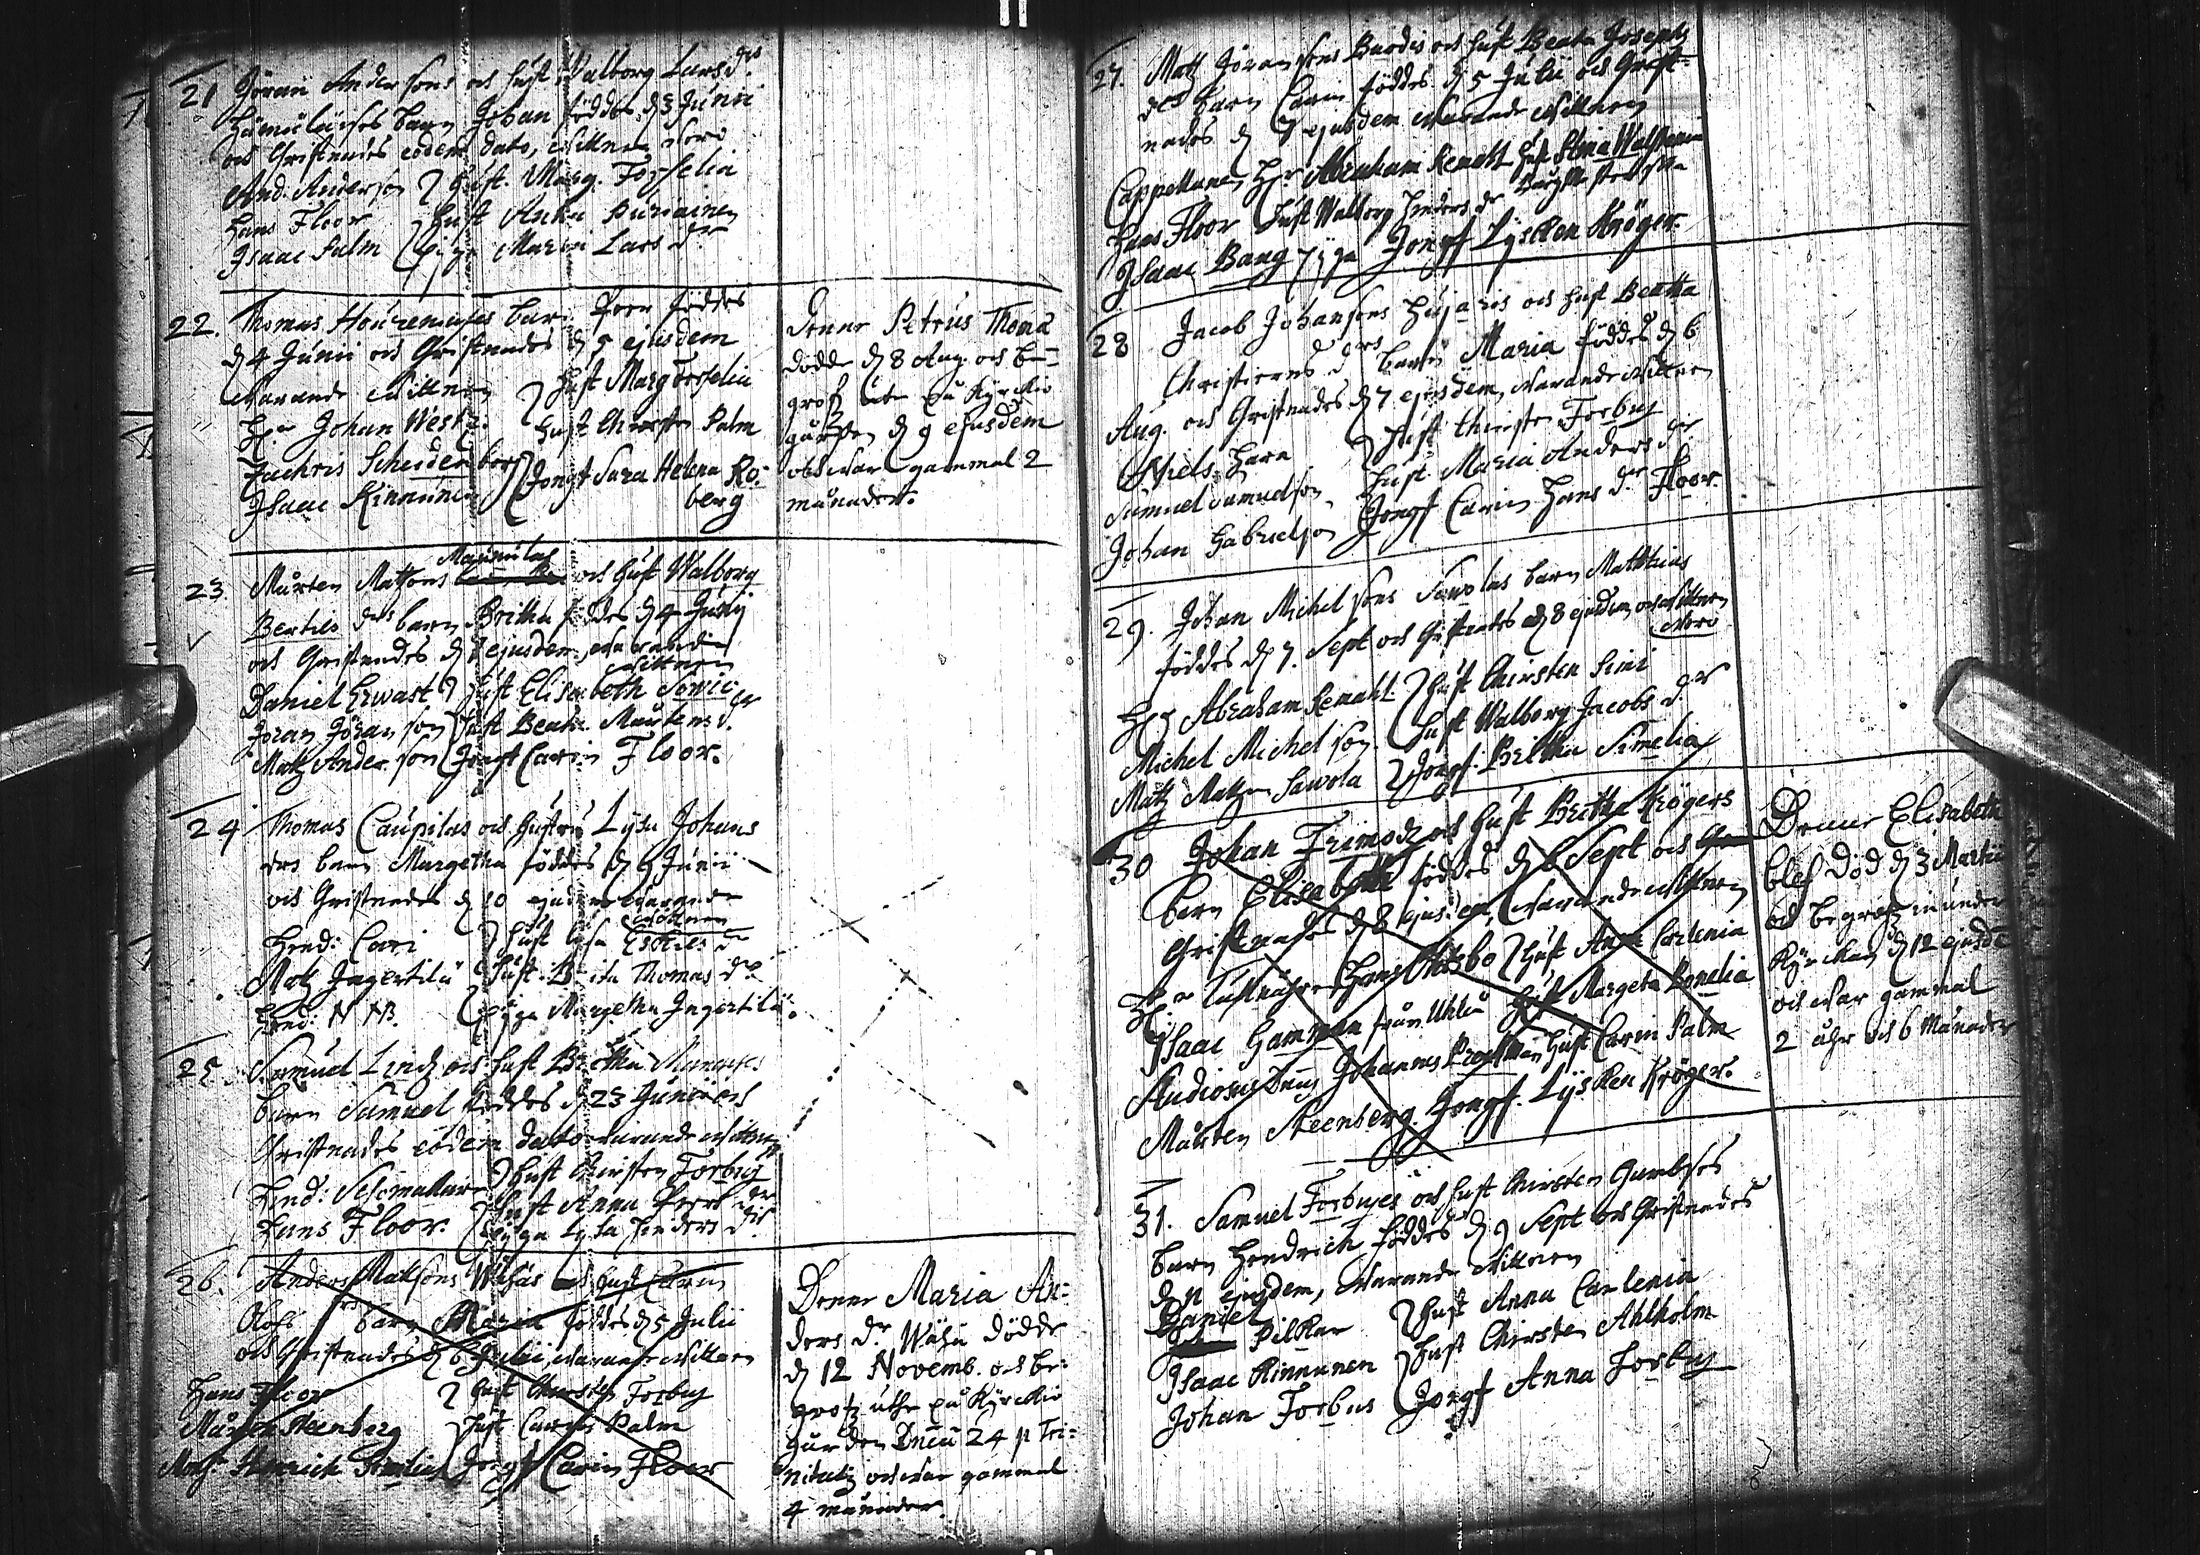 21 Jöran Andersons och hust Walborg Larsdrs
barn Johan föddes d 3 Junii
och Christnades eodem dato, wittnen woro
And. Anderson hust. Marg. Forselia
Hans Floor hust Anna
Isaac Palm Piga Maria Larsdr
22. Thomas barn Peer föddes
d 4 Junii och Christnades d 5 ejusdem
warande wittnen hust Marg Forselia
Hr Johan Westz: hust Chirsten Palm
Zachris Scheidenberg Jongf Sara Helena Ro:
Isaac Kinnunen berg
Denne Petrus Thomæ
dödde d 8 Aug. och be=
grofz ute på Kyrckio
gården d 9 ejusdem
och war gammal 2
månader.
23. Mårten Matsons Maunulas och hust Walborg
Bertils drs barn Britha föddes d 4 Junij
och Christnades d ejusdem, warande
wittnen
Daniel Erwast hust Elisabeth
Jöran Jöranson hust Beata Mårtens dr
Matz Anderson Jongf Carin Floor.
24 Thomas Caupilas och hustrus Lysa Johans
drs barn Margetha föddes d 9 Junii
och Christnades d 10 ejusdem warande
wittnen
Hend: Cari hust Lysa Eskils dr
Matz Ingertilä hust. Brita Thomas dr
Hend: N NB. Piga Margetha Ingertilä.
25. Samuel Lindz och hust Britha
barn Samuel föddes d 23 Junii och
Christnades eodem dato warande wittnen
Hend: Schomakare hust Chirsten Forbuj
Hans Floor. hust Anna Peers dr
Piga Lysa Henders dr
26. Anders Matsons Wähäs och hust Carin
barn Maria föddes d 5 Julii
och Christnades d 6 Julii, warande wittnen
Hans Floor hust Chirsten Forbuj
Mårten Steenberg hust Carin Palm
Henrich Jongf Carin Floor
Denne Maria An:
ders dr Wähä dödde
d 12 Novemb. och be:
grofz uthe på Kyrckio
gården Dnica 24 p Tri:
nitatis och war gammal
4 månader.
27. Matz Jöransons Bardis och hust Beata Josephz
drs barn Carin föddes d 5 Julii och Christ=
nades d 7 ejusdem warande wittnen
Cappellanen Hr Abraham Hust Stina
Hans Floor hust Walborg Henders dr
Isaac Bang Piga Jongf Lysken Kröger.
28 Jacob Johansons och hust Beatha
Christiernd drs barn Maria föddes d 6
Aug. och Christnades d 7 ejusdem, warande wittnen
Niels Hara hust Chirsten Forbuj
Samuel Samuelson hust. Maria Anders dr
Johan Gabrielson Jongf Carin Hans dr Floor.
29. Johan Michelsons Sawolas barn Matthias
föddes d 7. Sept och Christnades d 8 ejusdem, och wittnen
woro
Hr Abraham hust Chirsten Simi
Michel Michelson. hust Walborg Jacobs dr
Matz Matzon Sawola Jongf. Britha Simelia
30 Johan Frimodz och hust Britha Krögers
barn Elisabeth föddes d 6 Sept och
Christnades d 8 ejusdem, warande wittnen
Hr hust Anna Carlenia
Isaac Gamman från Uhlå hust Margeta
Studiosus Dnus Johannes hust Carin Palm
Mårten Steenberg. Jongf. Lysken Kröger.
Denne Elisabeth
blef död d 3 Martii
och begrofz inunder
Kyrckan d 12 ejusdē
och war gammal
2 åhr och 6 månader
31. Samuel Forbujes och hust Chirsten
barn Hendrich föddes d 9 Sept och Christnades
d 11 ejusdem, warande wittnen
Daniel
Pilkar hust Anna Carlenia
Isaac Kinnunen hust Chirsten Ahlholm
Johan Forbus Jongf Anna Forbuj